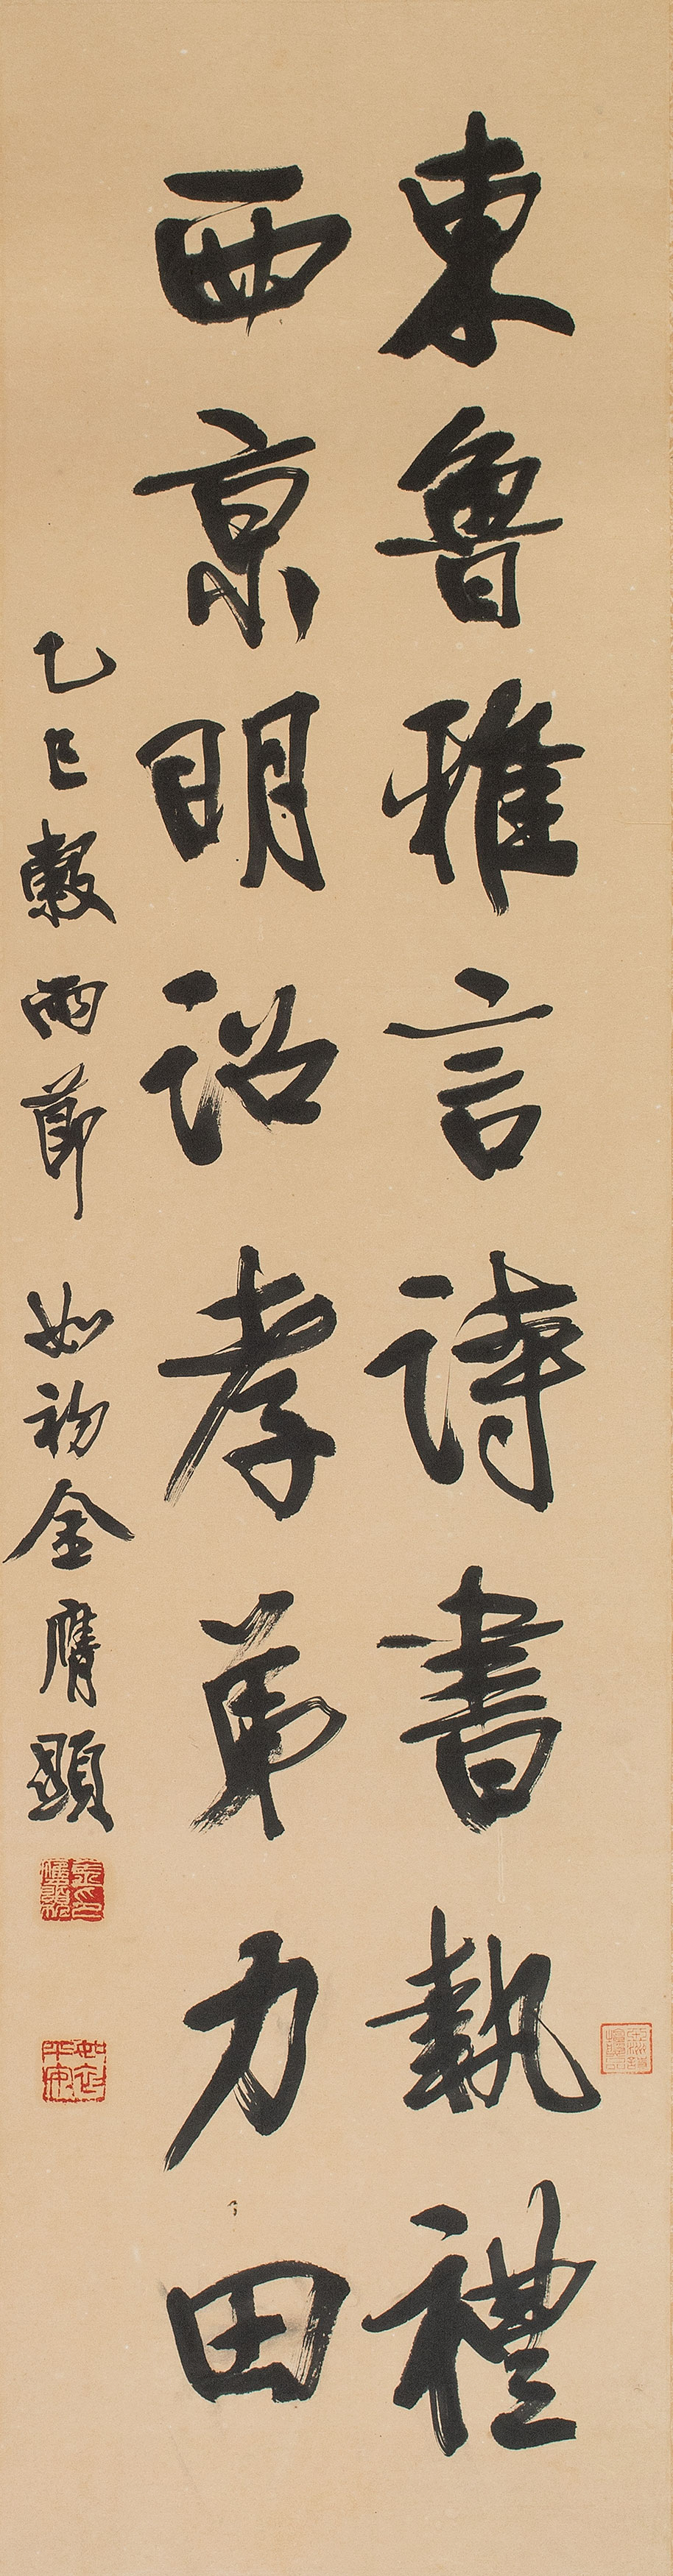 東魯雅言詩書執禮
西京明詔孝弟力田
乙巳穀雨節 如初金膺顯